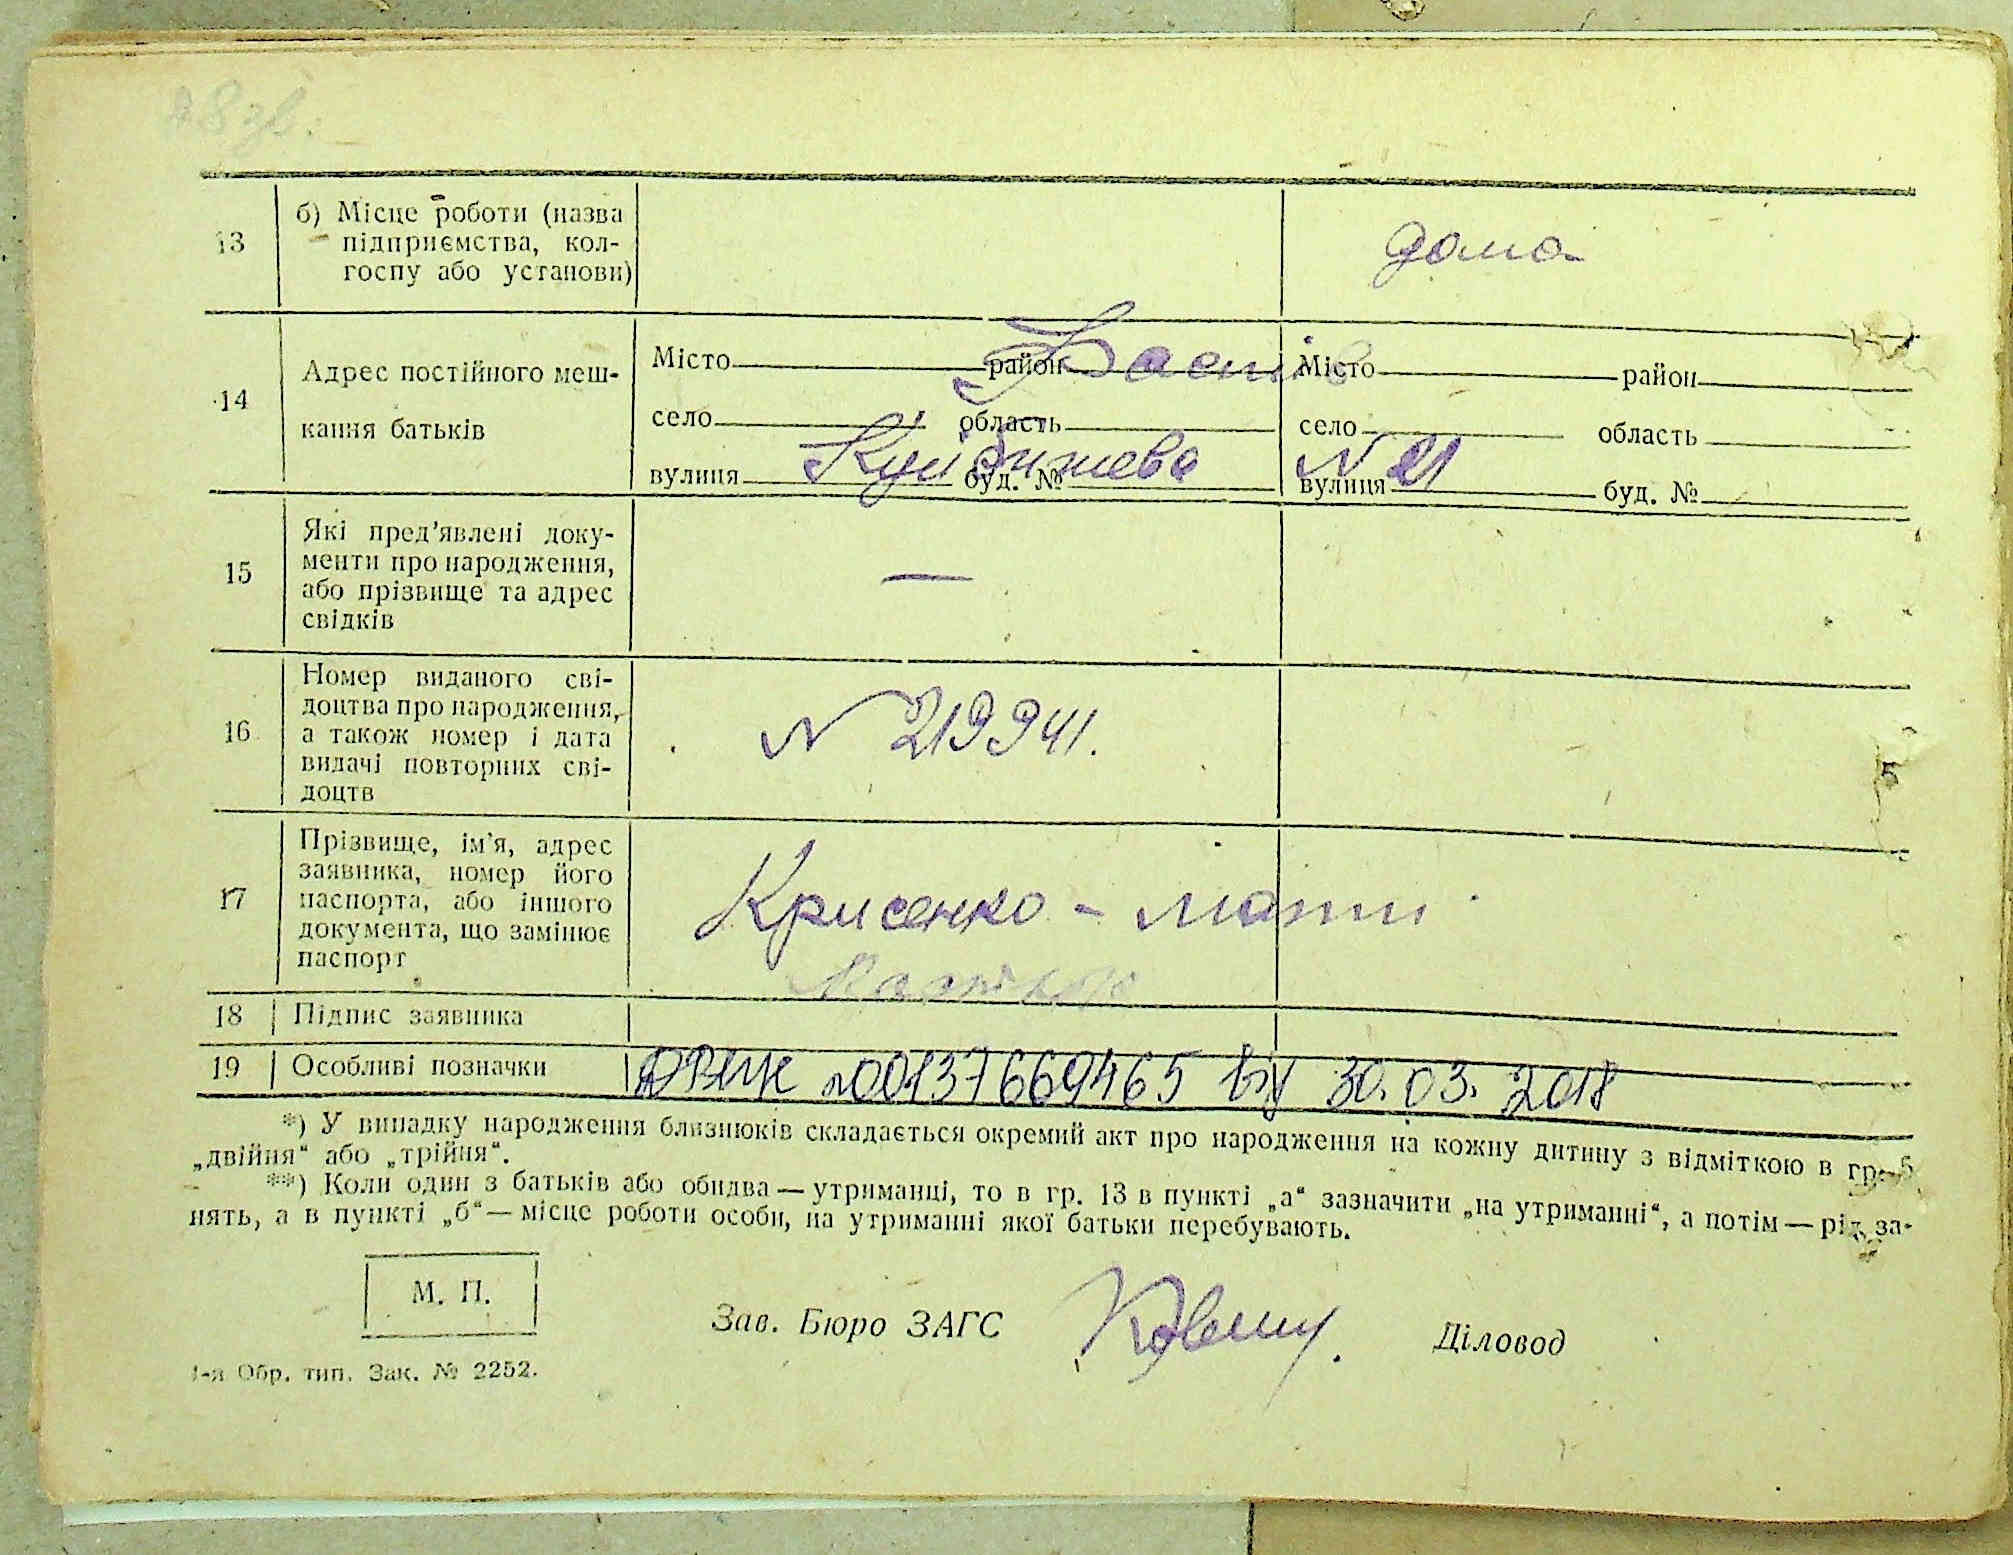 13 б) Місце роботи (назва
підприємства, кол-
госпу або установи)
дома
14 Адрес постійного меш-
кання батьків
Місто район Фастів Місто район
село область село область
вулиця Куйбишева буд. № вулиця N 21 буд. №
15 Які пред’явлені доку-
менти про народження,
або прізвище та адрес
свідків
—
16 Номер виданого сві-
доцтва про народження,
а також номер і дата
видачі повторних сві-
доцтв
N 219941.
17 Прізвище, ім’я, адрес
заявника, номер його
паспорта, або іншого
документа, що замінює
паспорт
Крисенко - мати
18 Підпис заявника
19 Особливі позначки 00137669465 від 30.03.2018
*) У випадку народження близнюків складається окремий акт про народження на кожну дитину з відміткою в гр. 5
„двійня“ або „трійня“.
**) Коли один з батьків або обидва — утриманці, то в гр. 13 в пункті „а“ зазначити „на утриманні“, а потім — рід за-
нять, а в пункті „б“ — місце роботи особи, на утриманні якої батьки перебувають.
М. П.
Зав. Бюро ЗАГС Діловод
1-я Обр. тип. Зак. № 2252.